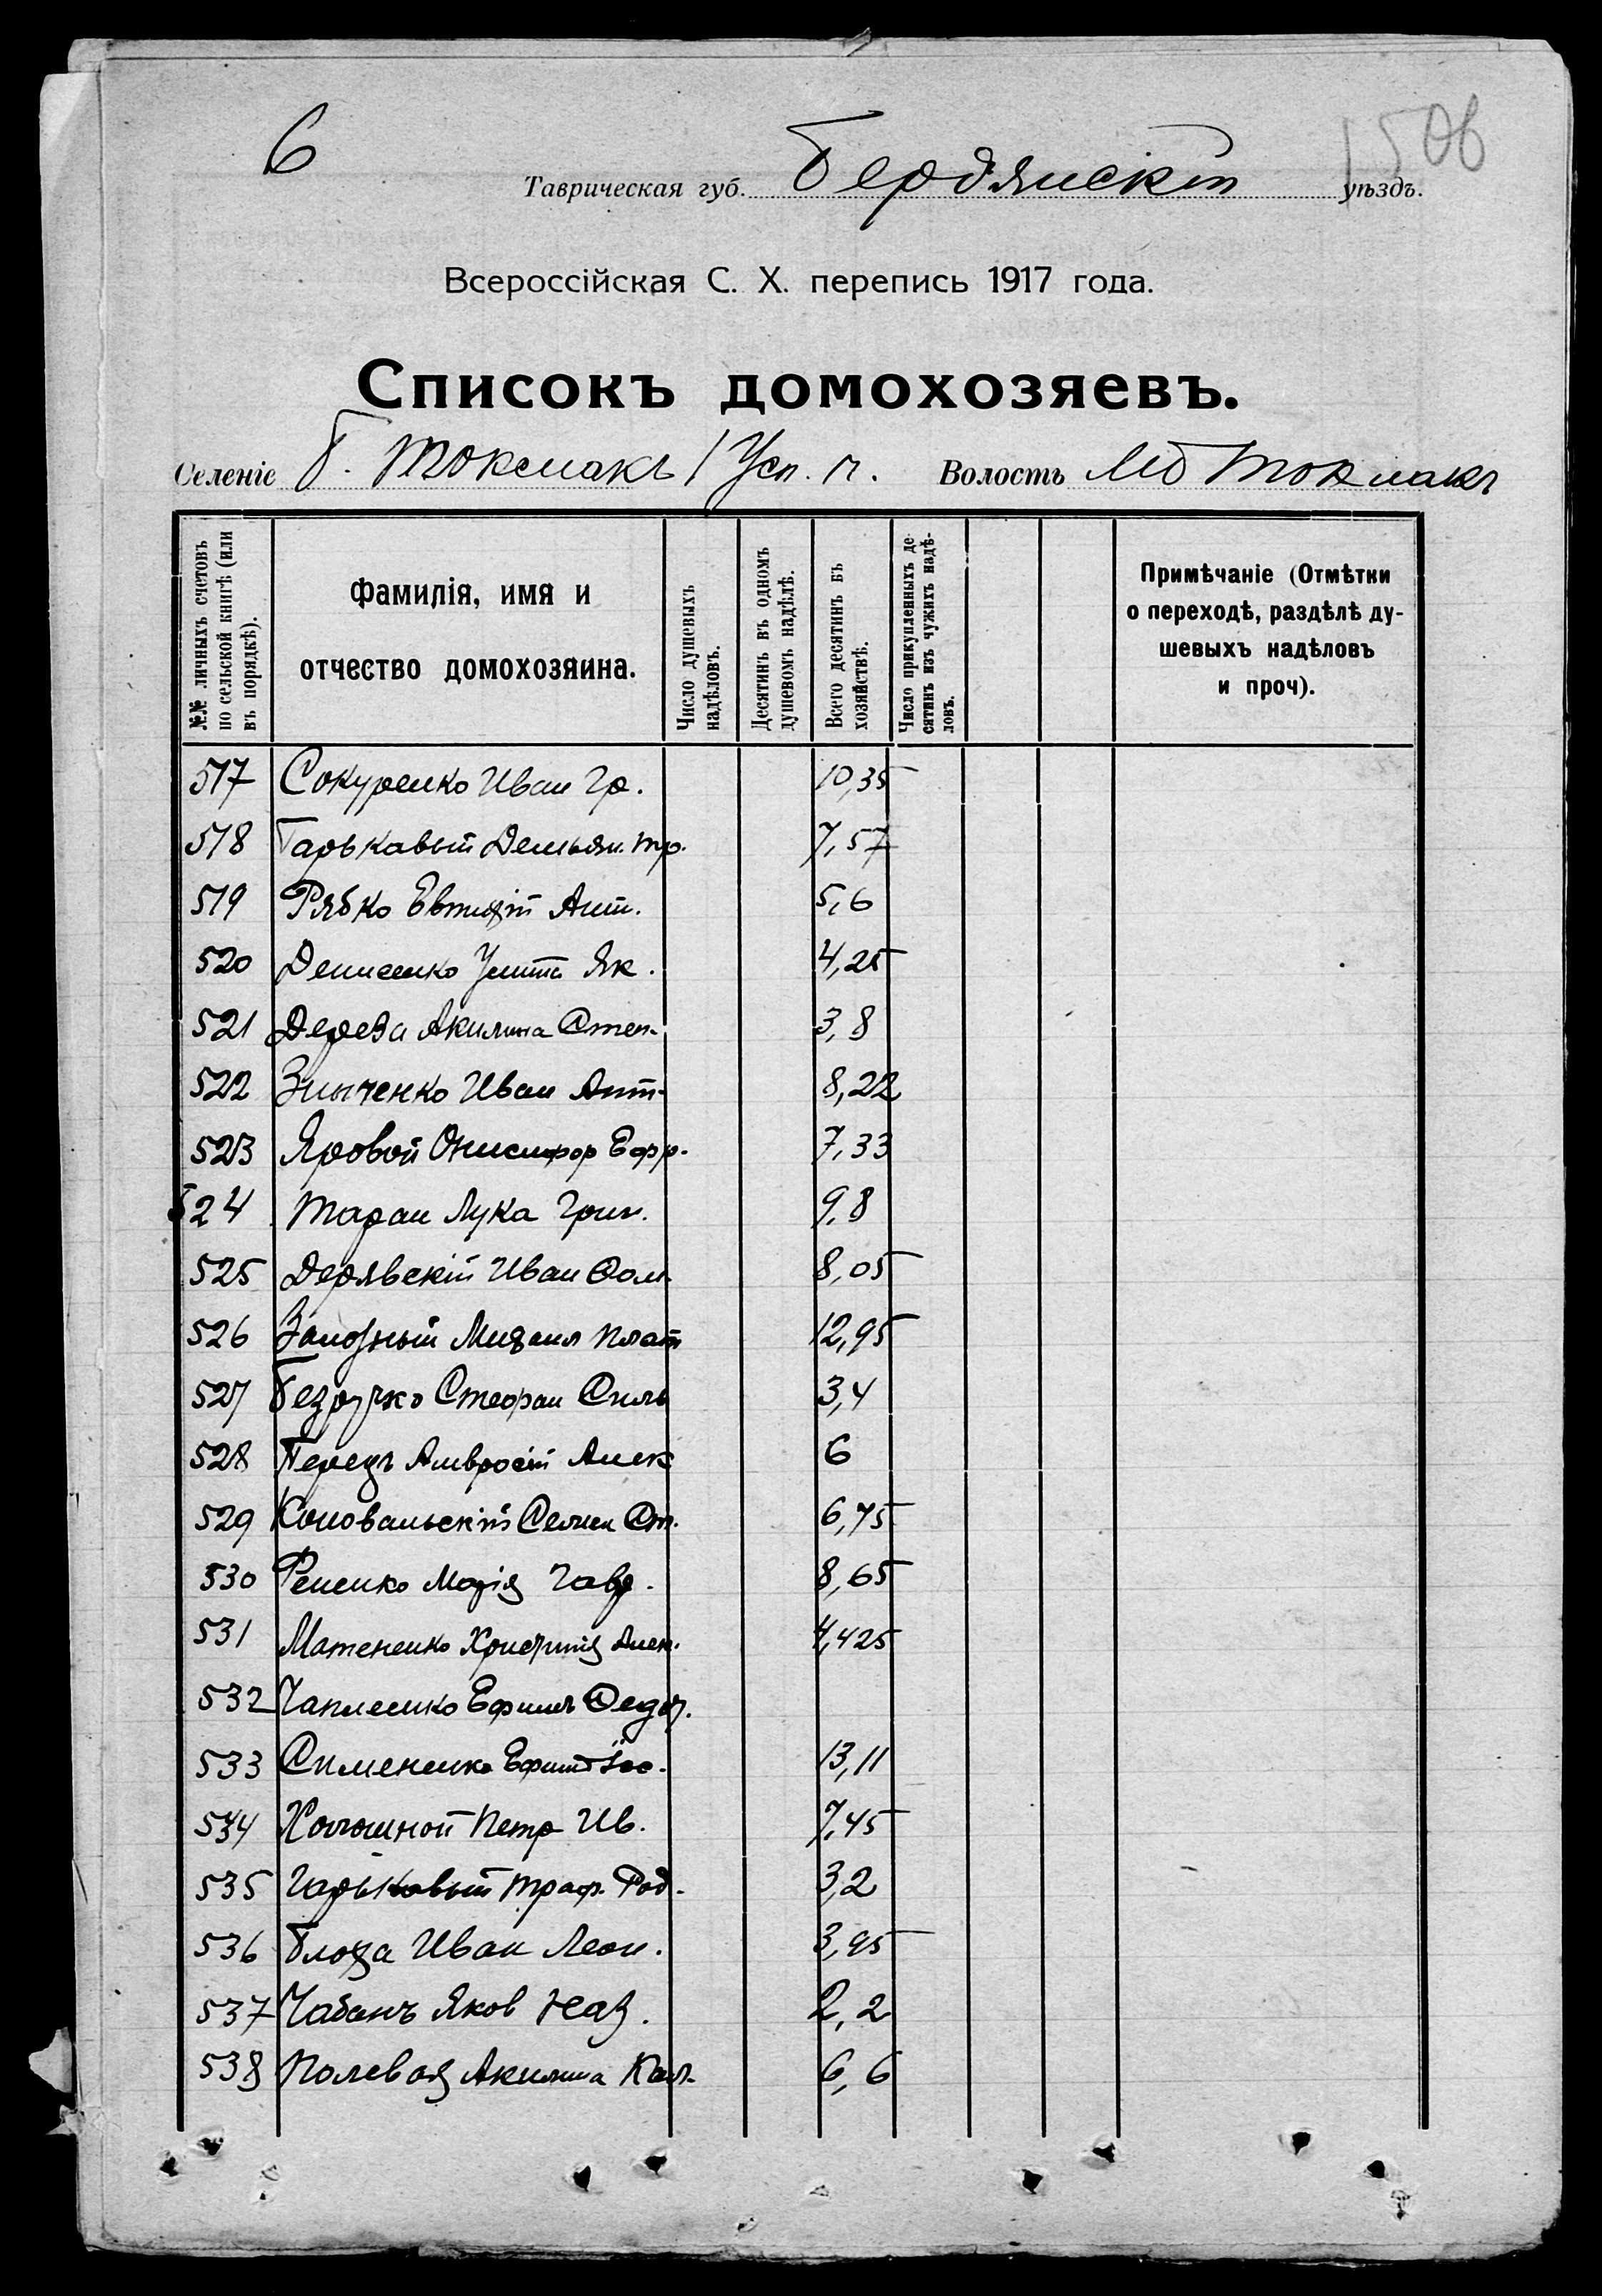 6
150б
Таврическая губ. Бердянскій уѣздъ.
Всероссійская С. Х. перепись 1917 года.
Списокъ домохозяевъ.
Селеніе Б. Токмакъ / Усп. п. Волость Мб Токмакъ
№№ личныхъ счетовъ по сельской книгѣ (или въ порядкѣ).
Фамилія, имя и отчество домохозяина.
Число душевыхъ надѣловъ.
Десятинъ въ одномъ душевомъ надѣлѣ.
Всего десятинъ въ хозяйствѣ.
Число прикупленныхъ десятинъ изъ чужихъ надѣловъ.
Примѣчаніе (Отмѣтки о переходѣ, раздѣлѣ душевыхъ надѣловъ и проч).
517 Сокуренко Иван Гр. 10,35
518 Гарькавый Демьян. Тр. 7,57
519 Рябко Евтихій Ант. 5,6
520 Денисенко Улита Як. 4,25
521 Дереза Акилина Степ. 3,8
522 Зинченко Иван Ант. 8,22
523 Яровой Онисифор Ефр. 7,33
524 Таран Лука Григ. 9,8
525 Дерявскій Иван Фом. 8,05
526 Запорный Михаил Плат 12,95
527 Безручко Стефан Силь 3,4
528 Перецъ Амвросій Алек 6
529 Коновальскій Семен Ст. 6,75
530 Репенко Марія Гавр. 8,65
531 Матененко Христинія Алек. 4,425
532 Чапленко Ефимъ Федор.
533 Симененко Ефим 13,11
534 Холошной Петр Ив. 7,45
535 Гарькавый Траф. Род. 3,2
536 Блоха Иван Леон. 3,95
537 Чабанъ Яков Наз. 2,2
538 Полевая Акилина Кал. 6,6